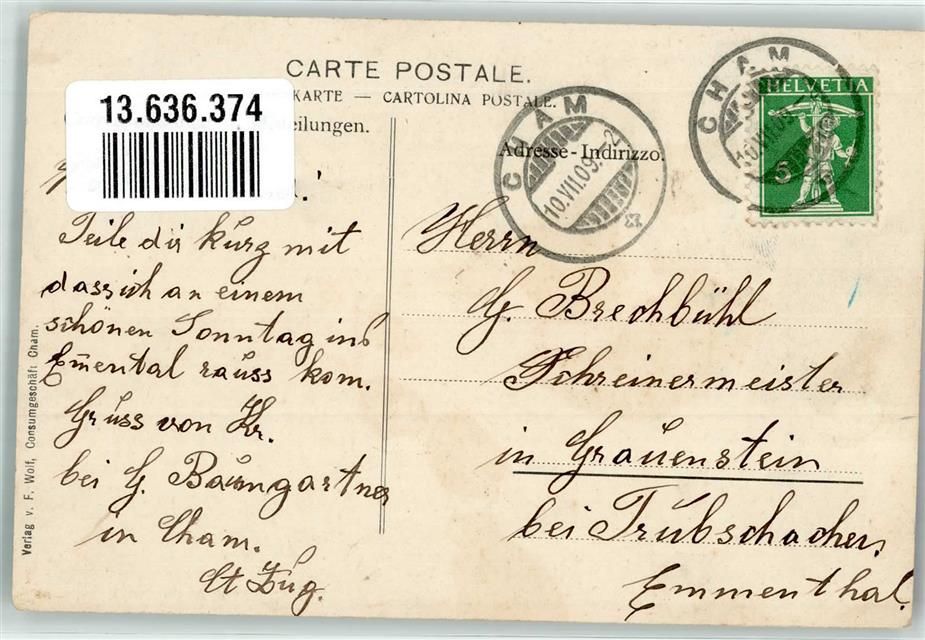 CARTE POSTALE.
KARTE — CARTOLINA POSTALE.
13.636.374
eilungen.
Adresse - Indirizzo.
CHAM
10.VII.09.
CHAM
10.VII.09.
HELVETIA
5
Teile dir kurz mit
dass ich an einem
schönen Sonntag ins
Em̄ental rauss kom.
Gruss von Hr.
bei G. Baumgartner
in Cham.
Ct Zug.
Herrn
G. Brechbühl
Schreinermeister
in Grauenstein
bei Trubschachen
Emmenthal.
Verlag v. F. Wolf, Consumgeschäft Cham.